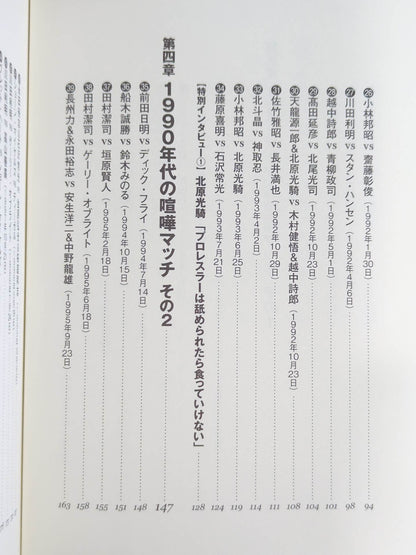 ㉖ 小林邦昭 vs 齋藤彰俊（1992年1月30日） 94
㉗ 川田利明 vs スタン・ハンセン（1992年4月6日） 98
㉘ 越中詩郎 vs 青柳政司（1992年5月1日） 101
㉙ 髙田延彦 vs 北尾光司（1992年10月23日） 104
㉚ 天龍源一郎&北原光騎 vs 木村健悟&越中詩郎（1992年10月23日） 108
㉛ 佐竹雅昭 vs 長井満也（1992年10月29日） 111
㉜ 北斗晶 vs 神取忍（1993年4月2日） 114
㉝ 小林邦昭 vs 北原光騎（1993年6月25日） 119
㉞ 藤原喜明 vs 石沢常光（1993年7月21日） 124
［特別インタビュー①］北原光騎「プロレスラーは舐められたら食っていけない」 128
第四章 1990年代の喧嘩マッチ その2 147
㉟ 前田日明 vs ディック・フライ（1994年7月14日） 148
㊱ 船木誠勝 vs 鈴木みのる（1994年10月15日） 151
㊲ 田村潔司 vs 垣原賢人（1995年2月18日） 155
㊳ 田村潔司 vs ゲーリー・オブライト（1995年6月18日） 158
㊴ 長州力&永田裕志 vs 安生洋二&中野龍雄（1995年9月23日） 163